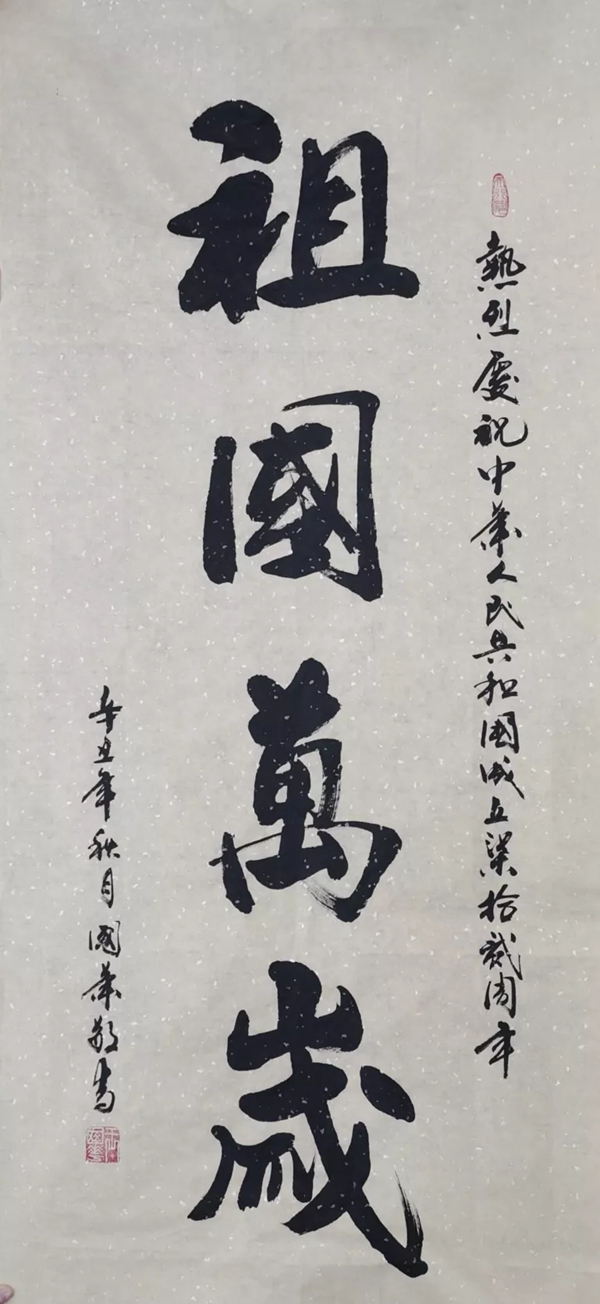 熱烈慶祝中華人民共和國成立柒拾貳周年
祖國萬歲
辛丑年秋月國華敬書